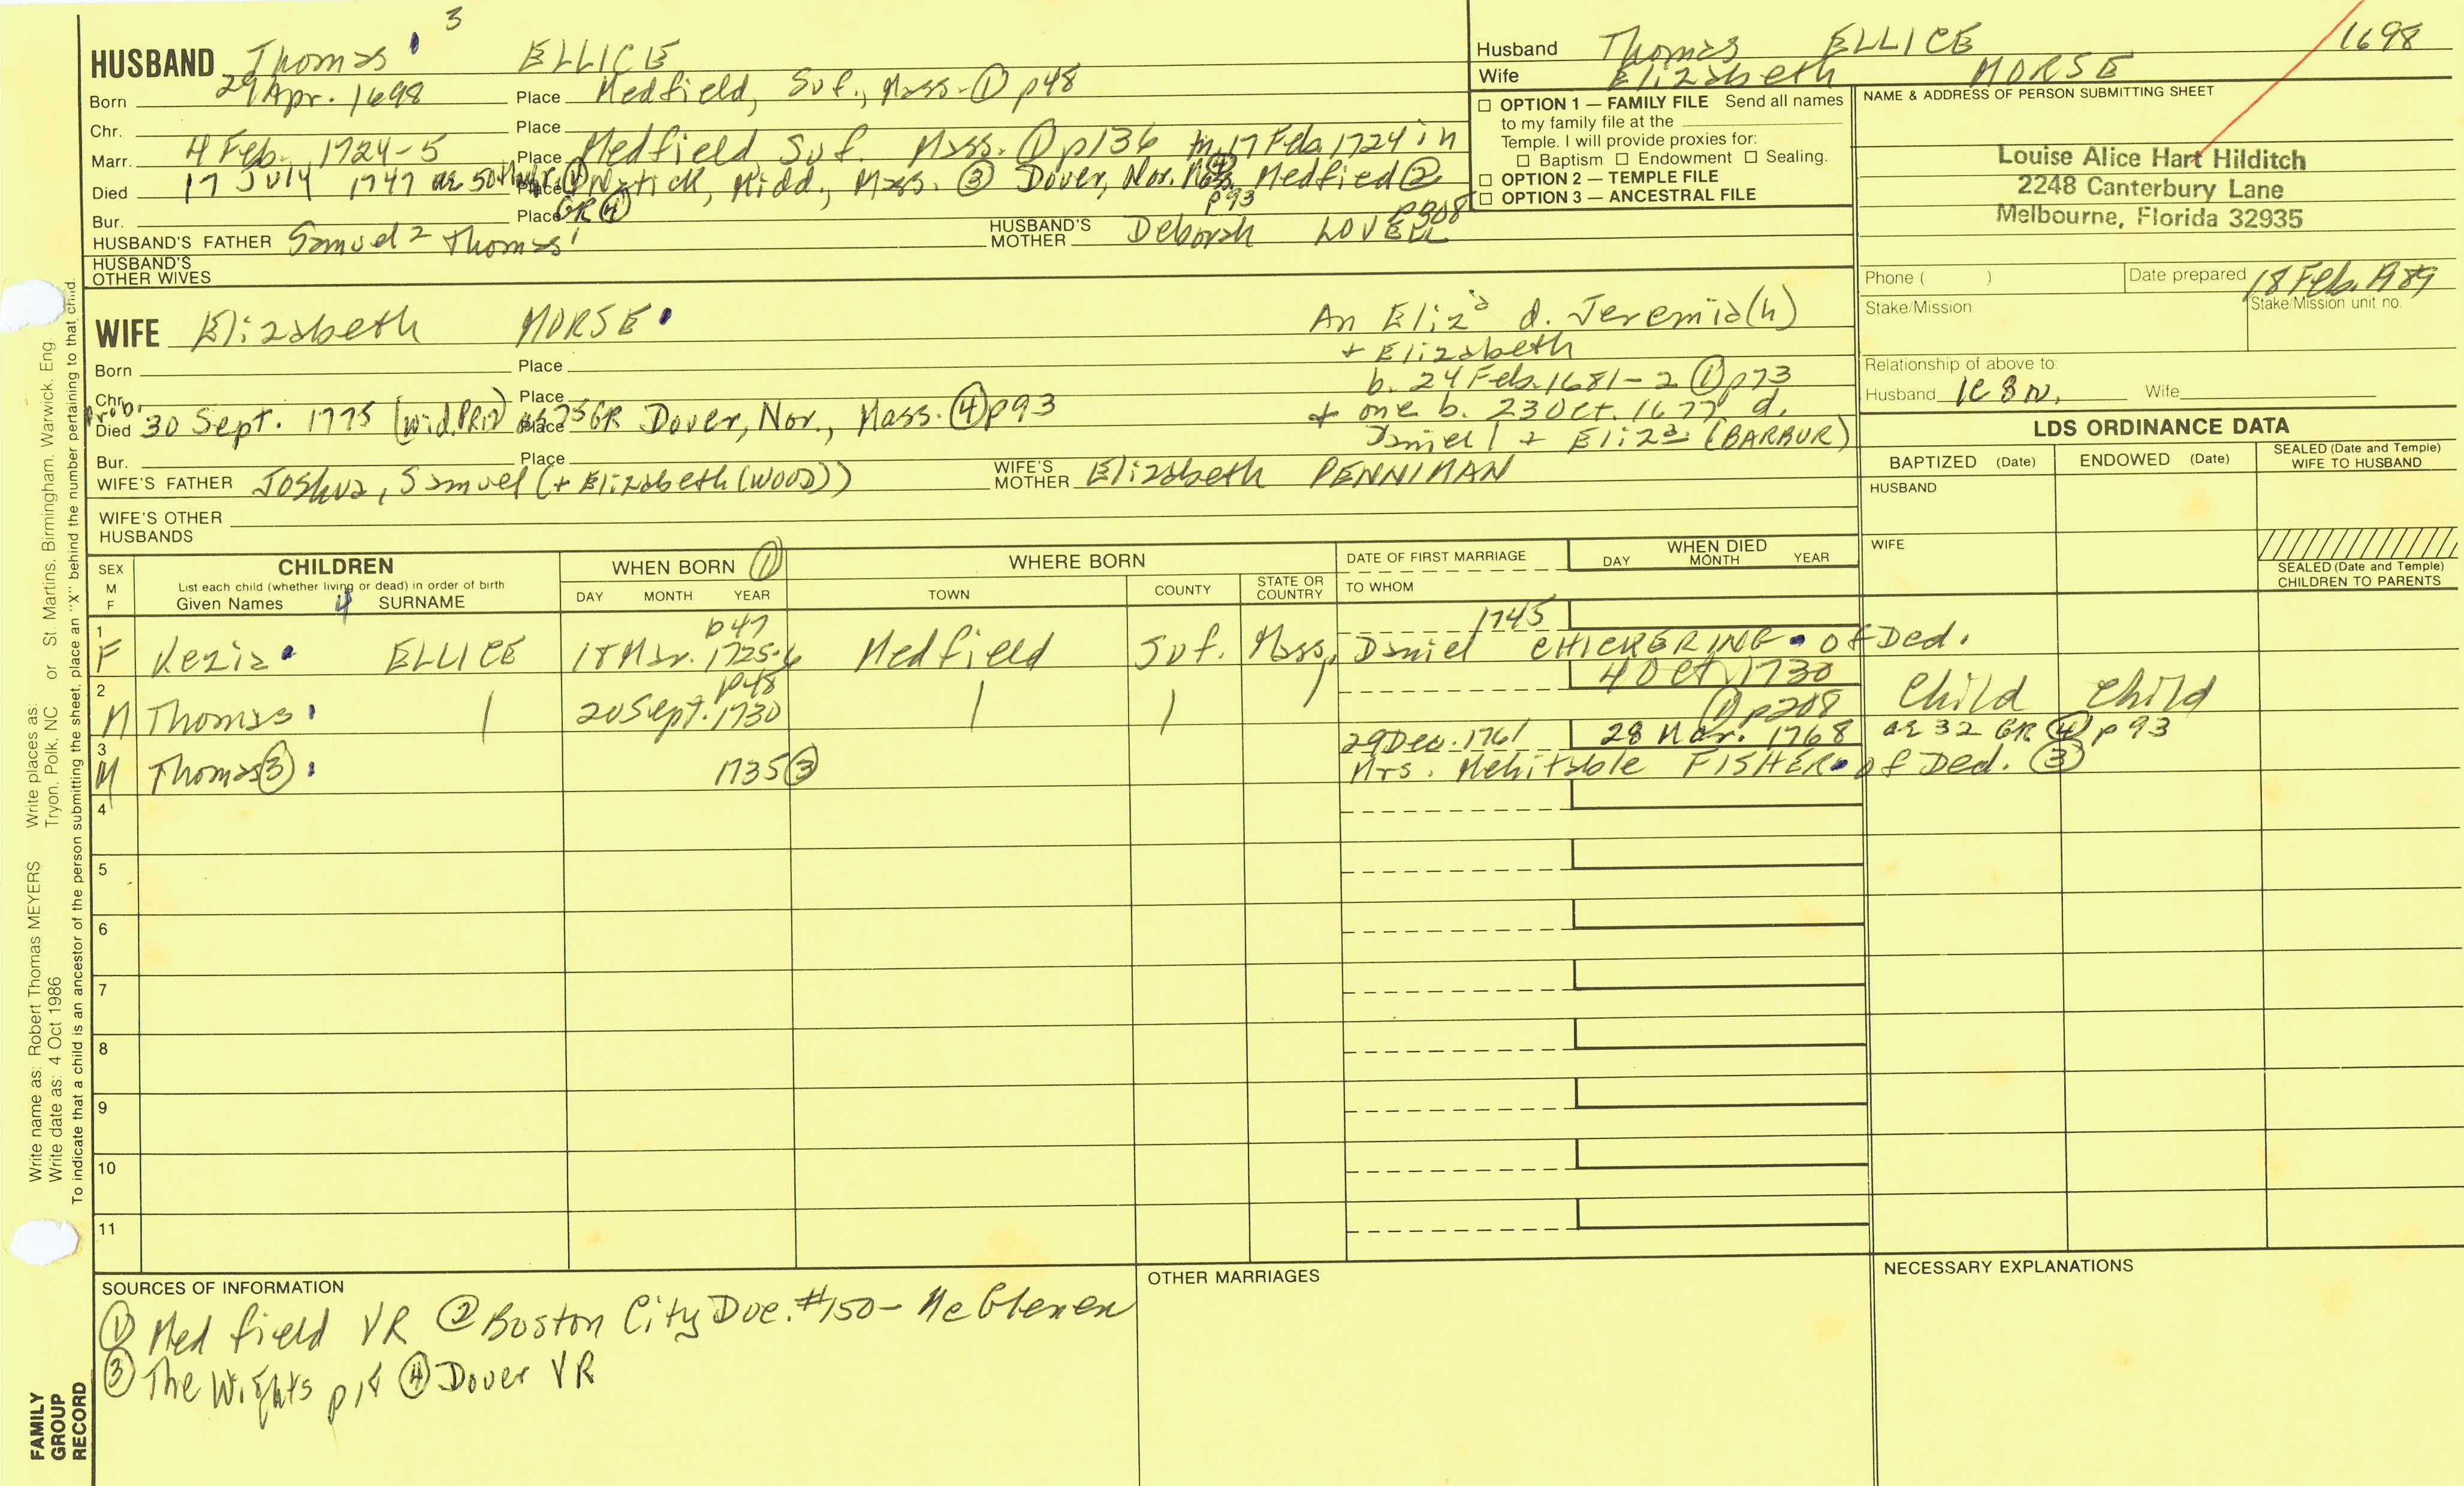 3
HUSBAND Thomas ELLICE
Born 29 Apr. 1698 Place Medfield, Suf., Mass. ① p48
Chr. Place
Marr. 4 Feb. 1724-5 Place Medfield Suf. Mass. ① p136 m. 17 Feb. 1724 in
Died 17 July 1747 ae 50 Place Natick, Midd., Mass. ③ Dover, Nor. Medfied ②
p93
Bur. Place GR ④ p208
HUSBAND'S FATHER Samuel 2 Thomas 1 HUSBAND'S MOTHER Deborah LOVELL
HUSBAND'S OTHER WIVES
Husband Thomas ELLICE 1698
Wife Elizabeth MORSE
☐ OPTION 1 — FAMILY FILE Send all names
to my family file at the
Temple. I will provide proxies for:
☐ Baptism ☐ Endowment ☐ Sealing.
☐ OPTION 2 — TEMPLE FILE
☐ OPTION 3 — ANCESTRAL FILE
NAME & ADDRESS OF PERSON SUBMITTING SHEET
Louise Alice Hart Hilditch
2248 Canterbury Lane
Melbourne, Florida 32935
Phone ( ) Date prepared 18 Feb. 1989
Stake/Mission Stake/Mission unit no.
Relationship of above to:
Husband Wife
WIFE Elizabeth MORSE
An Eliza d. Jeremia(h)
+ Elizabeth
b. 24 Feb. 1681-2 ① p73
+ one b. 23 Oct. 1677 d.
Daniel 1 + Eliza (BARBUR)
Born Place
Chr. Place
Prob.
Died 30 Sept. 1775 (wid. PR12) ae 75 GR Place Dover, Nor., Mass. ④ p93
Bur. Place
WIFE'S FATHER Joshua, Samuel (+ Elizabeth (WOOD)) WIFE'S MOTHER Elizabeth PENNIMAN
WIFE'S OTHER HUSBANDS
LDS ORDINANCE DATA
BAPTIZED (Date) ENDOWED (Date) SEALED (Date and Temple) WIFE TO HUSBAND
HUSBAND
WIFE
SEALED (Date and Temple) CHILDREN TO PARENTS
SEX M F
CHILDREN
List each child (whether living or dead) in order of birth
Given Names 4 SURNAME
WHEN BORN ①
DAY MONTH YEAR
WHERE BORN
TOWN COUNTY STATE OR COUNTRY
DATE OF FIRST MARRIAGE
TO WHOM
WHEN DIED
DAY MONTH YEAR
1 p47 1745
F Kezia ELLICE 18 Mar. 1725-6 Medfield Suf. Mass. Daniel CHICKERING of Ded.
2 p48 4 Oct 1730
M Thomas 20 Sept. 1730 ① p208 Child Child
3 29 Dec. 1761 28 Mar. 1768 ae 32 GR ④ p93
M Thomas ③ 1735 ③ Mrs. Mehitable FISHER of Ded. ③
4
5
6
7
8
9
10
11
SOURCES OF INFORMATION
① Medfield VR ② Boston City Doc. #150 - McGlenen
③ The Wights p18 ④ Dover VR
OTHER MARRIAGES
NECESSARY EXPLANATIONS
Write name as: Robert Thomas MEYERS Write places as: St. Martins, Birmingham, Warwick, Eng
Write date as: 4 Oct 1986 Tryon, Polk, NC or
To indicate that a child is an ancestor of the person submitting the sheet, place an "X" behind the number pertaining to that child.
FAMILY
GROUP
RECORD